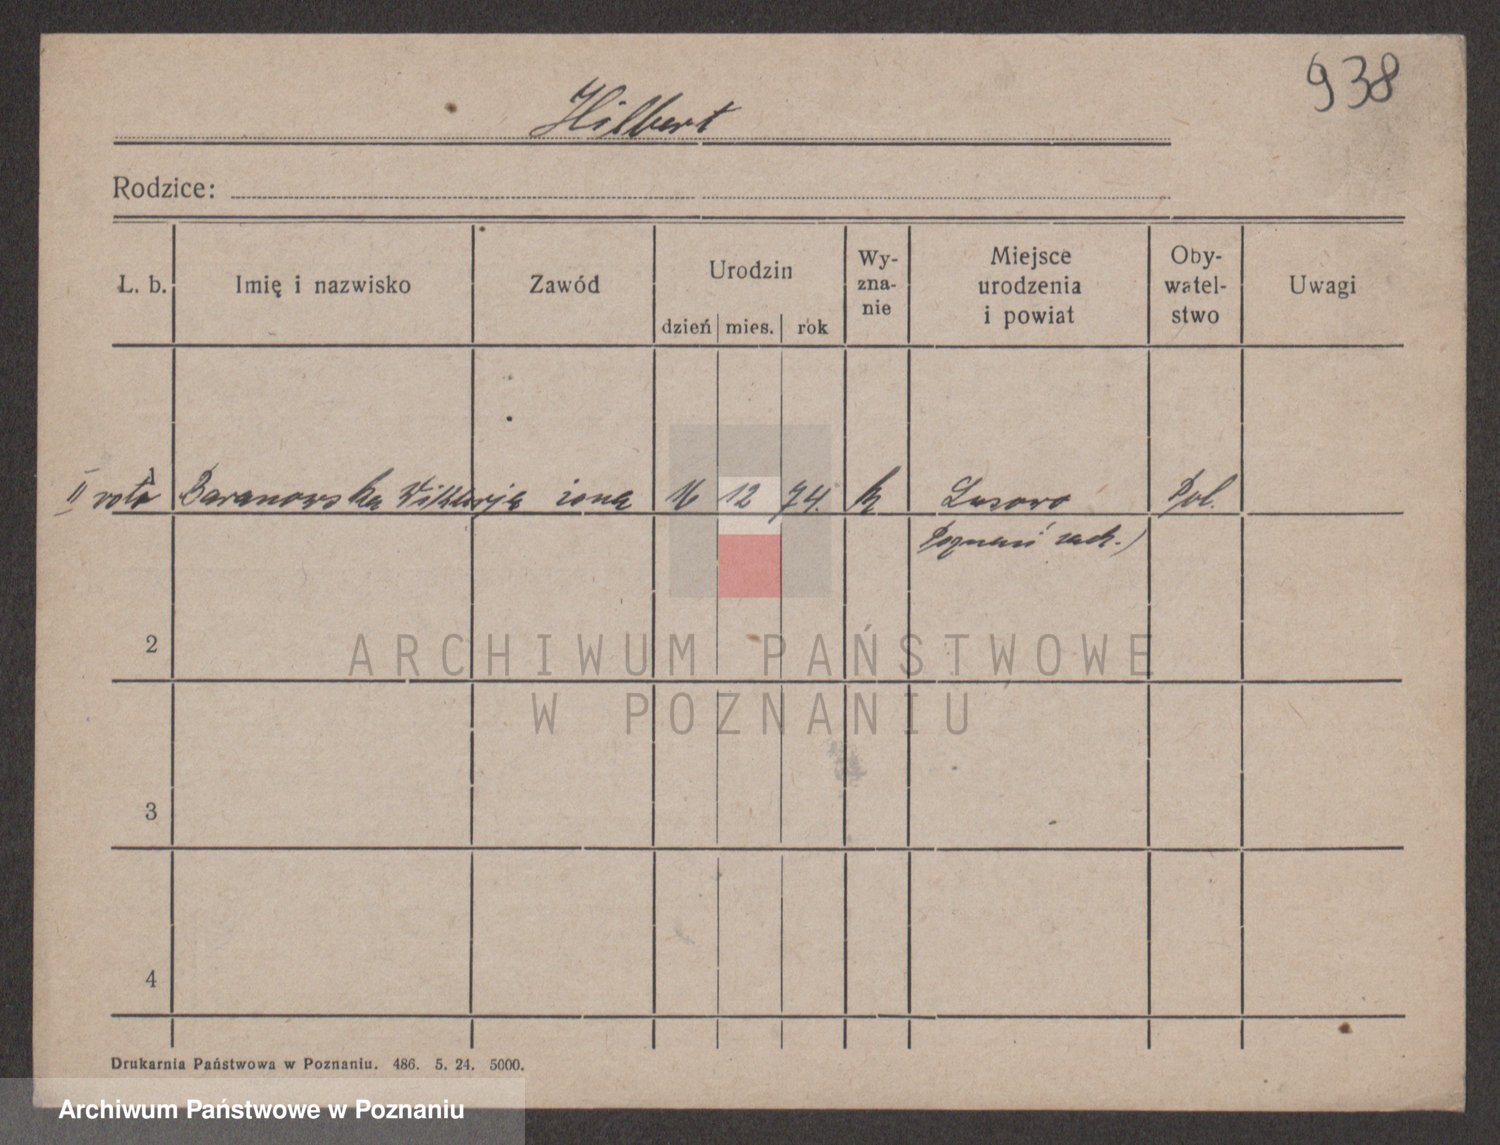 938
Hilbert
Rodzice:
L. b. Imię i nazwisko Zawód Urodzin dzień mies. rok Wy- zna- nie Miejsce urodzenia i powiat Oby- watel- stwo Uwagi
1
II voto Baranowska Wiktorja żona 16 12 74. k Lusowo Pol.
Poznań zach.)
2
ARCHIWUM PAŃSTWOWE
W POZNANIU
3
4
Drukarnia Państwowa w Poznaniu. 486. 5. 24. 5000.
Archiwum Państwowe w Poznaniu